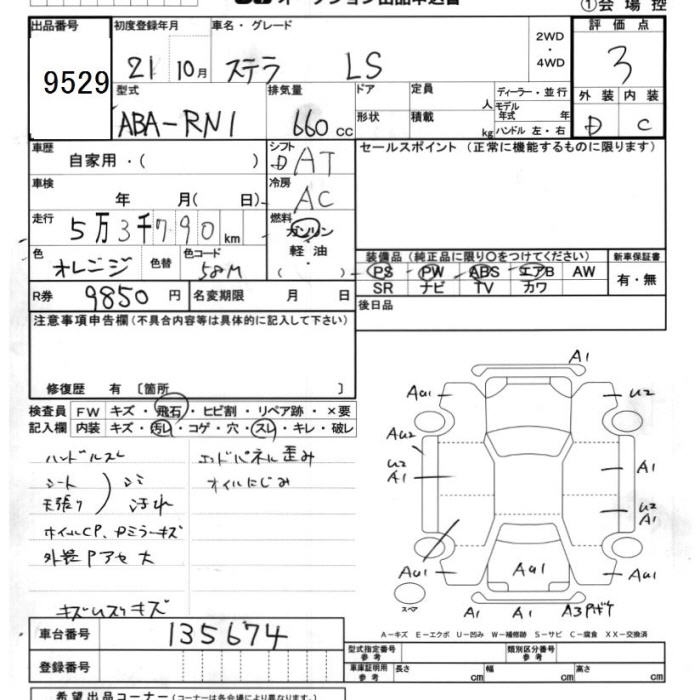 ①会場控
出品番号 初度登録年月 車名・グレード 2WD・4WD 評価点
9529 21 10月 ステラ LS 3
型式 排気量 ドア 定員 人 ディーラー・並行 外装 内装
ABA-RN1 660cc 形状 積載 kg モデル年式 年 D C
ハンドル 左・右
車歴 自家用・( ) シフト D AT セールスポイント(正常に機能するものに限ります)
車検 年 月( 日) 冷房 AC
走行 5万3千790km 燃料 ガソリン
軽油
( )
色 オレンジ 色替 色コード 58M
装備品(純正品に限り○をつけてください) 新車保証書
PS PW ABS エアB AW 有・無
SR ナビ TV カワ
R券 9850円 名変期限 月 日 後日品
注意事項申告欄(不具合内容等は具体的に記入して下さい)
修復歴 有 〔箇所 〕
検査員 FW キズ・飛石・ヒビ割・リペア跡・×要
記入欄 内装 キズ・汚レ・コゲ・穴・スレ・キレ・破レ
ハンドルスレ エンドパネル歪み
シート シミ オイルにじみ
天張り 汚れ
ホイルCP、Dミラーキズ
外装Pアセ大
キズ
A1
AU1 U2
AU2
U2 A1
A1 U2
A1
AU1 AU1 AU1
スペア A1 A1 A3
A-キズ E-エクボ U-凹み W-補修跡 S-サビ C-腐食 XX-交換済
車台番号 135674 型式指定番号 参考 類別区分番号 参考
登録番号 車庫証明用 参考 長さ cm 幅 cm 高さ cm
希望出品コーナー(コーナーは各会場により異なります)